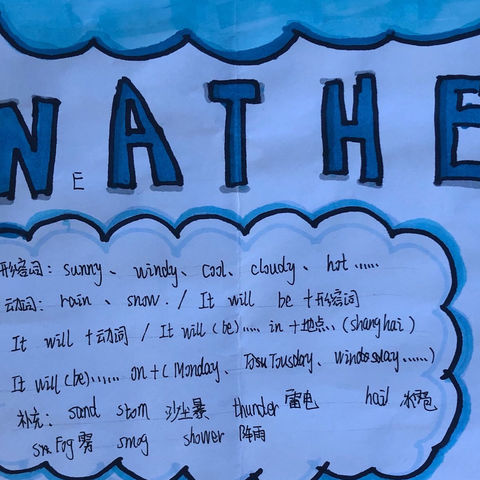 N E A T H E
形容词: sunny、windy、cool、cloudy、hot……
动词: rain、snow. / It will be +形容词
It will +动词 / It will (be)…… in +地点..(shanghai)
It will (be)…… on +(Monday、Tousday、……)
补充: sand stom 沙尘暴 thunder 雷电 hail 冰雹
Fog 雾 smog shower 阵雨